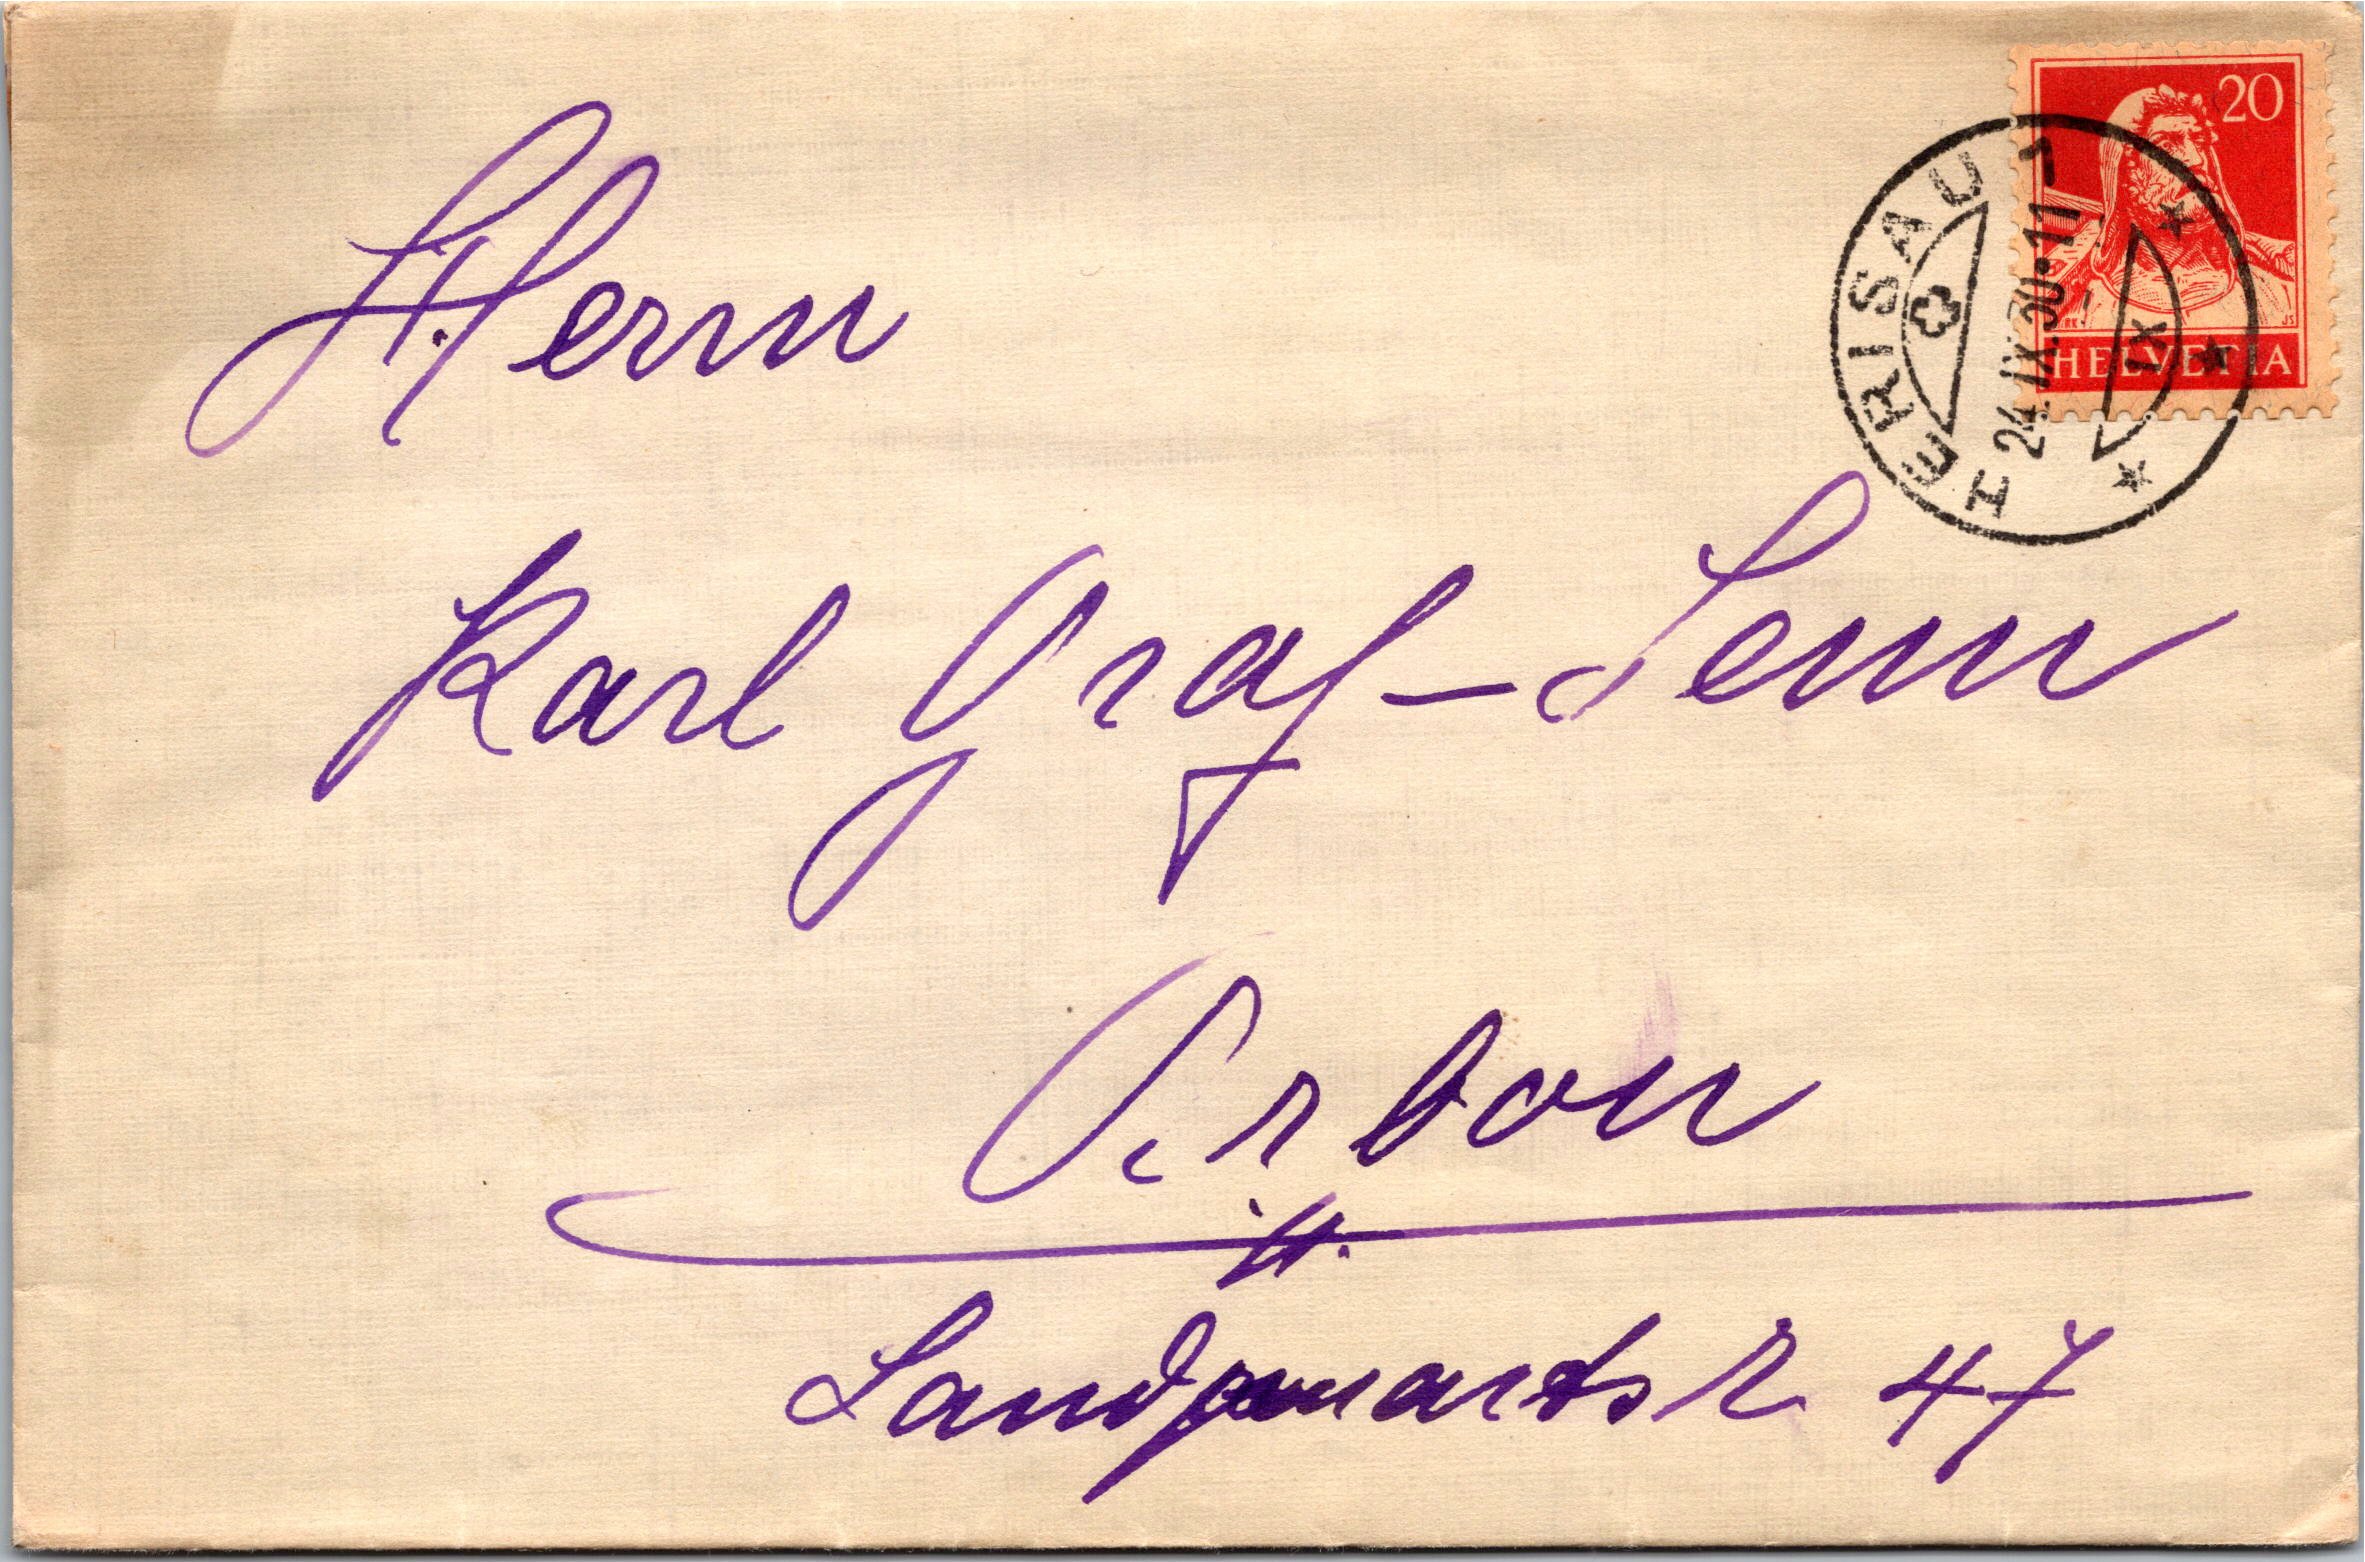 20
HERISAU 1
24.IX.30•11
IX
HELVETIA
Herrn
Karl Graf-Senn
Arbon
Landquartstr 47